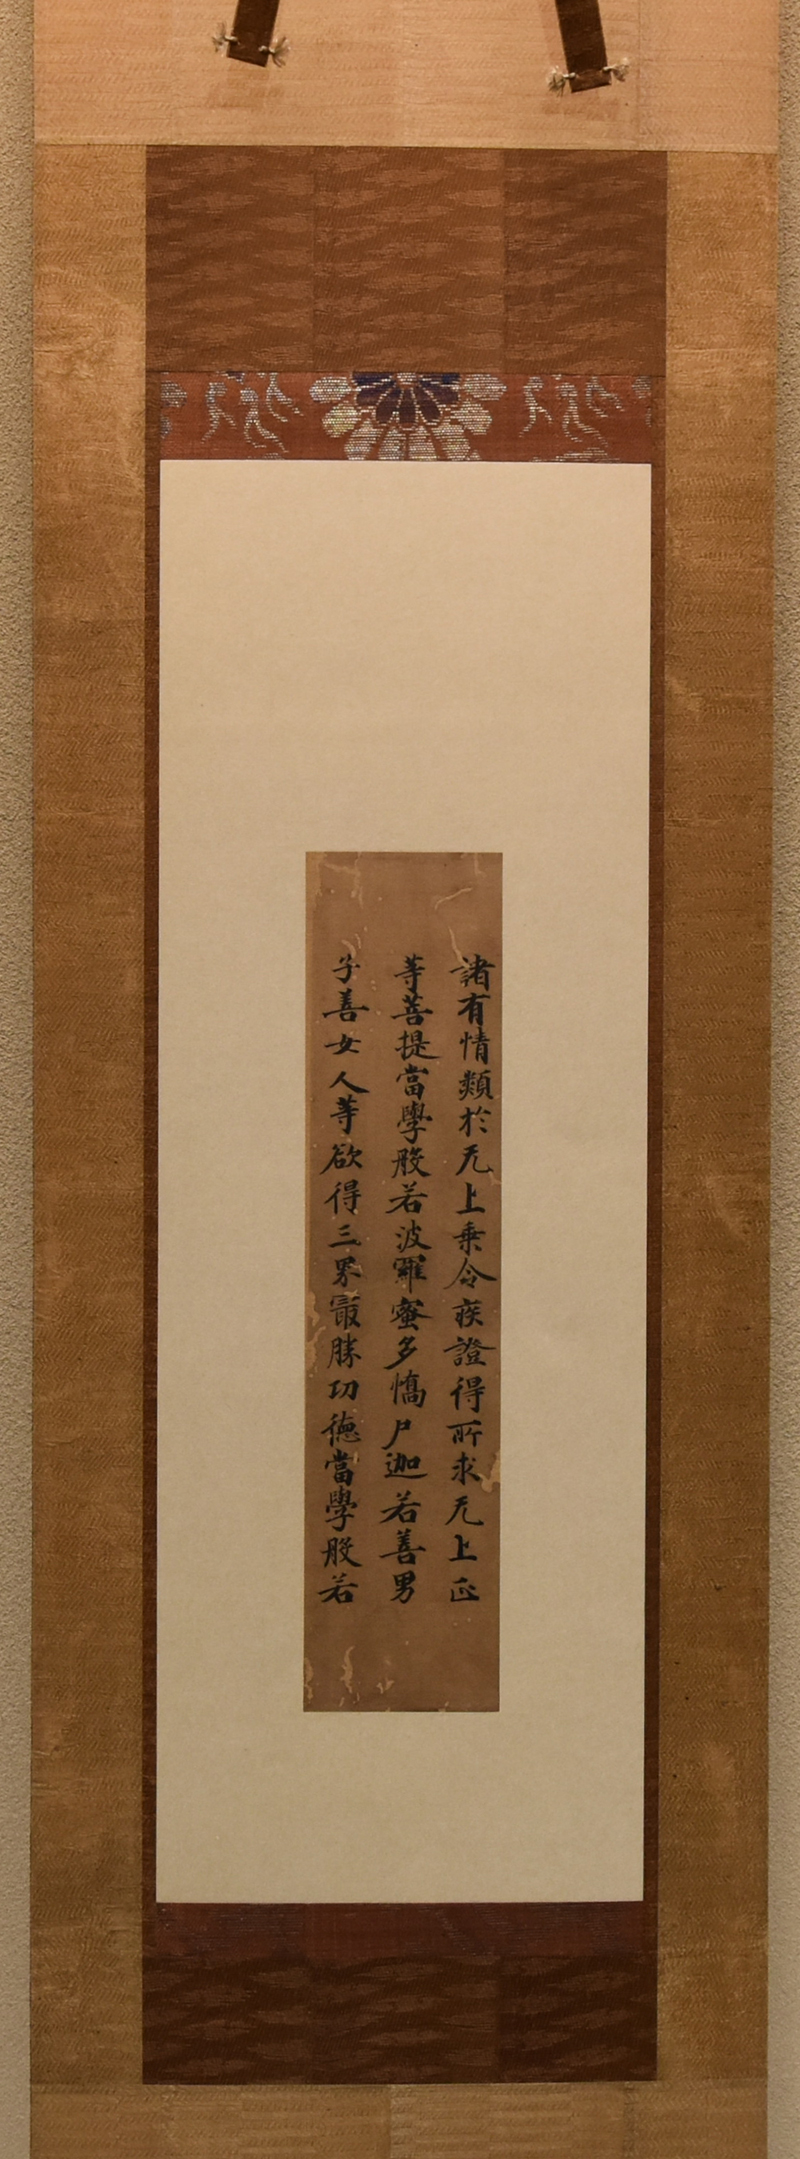 諸有情類於无上乗令疾證得所求无上正
等菩提當學般若波羅蜜多憍尸迦若善男
子善女人等欲得三界㝡勝功德當學般若